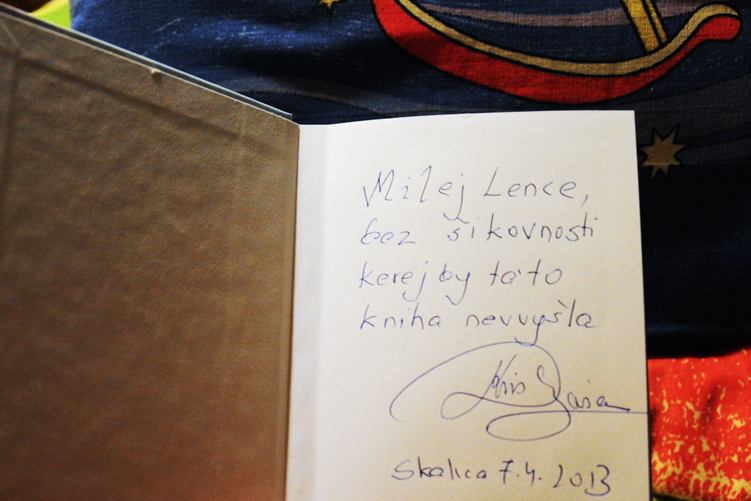 Milej Lence,
bez šikovnosti
kerej by tato
kniha nevyšla
Skalica 7.4. 2013